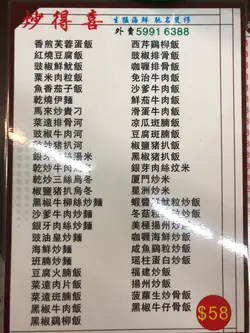 炒得喜
生猛海鮮 馳名煲仔
外賣 5991 6388
香煎芙蓉蛋飯
紅燒豆腐飯
豉椒鮮魷飯
粟米肉粒飯
魚香茄子飯
乾燒伊麵
馬來炒貴刁
菜遠排骨河
豉椒牛肉河
乾炒牛肉河
銀芽
乾炒牛
乾炒三絲烏冬
椒鹽豬扒烏冬
黑椒牛柳絲炒麵
沙爹牛肉炒麵
銀芽肉絲炒麵
豉油皇炒麵
海鮮炒麵
班腩飯
豆腐火腩飯
菜遠肉片飯
菜遠班腩飯
黑椒牛柳飯
黑椒雞柳飯
西芹雞柳飯
豉椒排骨飯
咖喱排骨飯
免治牛肉飯
沙爹牛肉飯
鮮茄牛肉飯
滑蛋牛肉飯
涼瓜班腩飯
豆腐班腩飯
椒鹽豬扒飯
黑椒豬扒飯
銀芽肉絲炆米
廈門炒米
星洲炒米
蝦醬鮮魷粒炒飯
冬菇粒炒飯
美極揚州炒飯
咖喱海鮮炒飯
咸魚雞粒炒飯
瑤柱蛋白炒飯
福建炒飯
揚州炒飯
菠蘿生炒骨飯
黑椒牛仔骨飯
$58